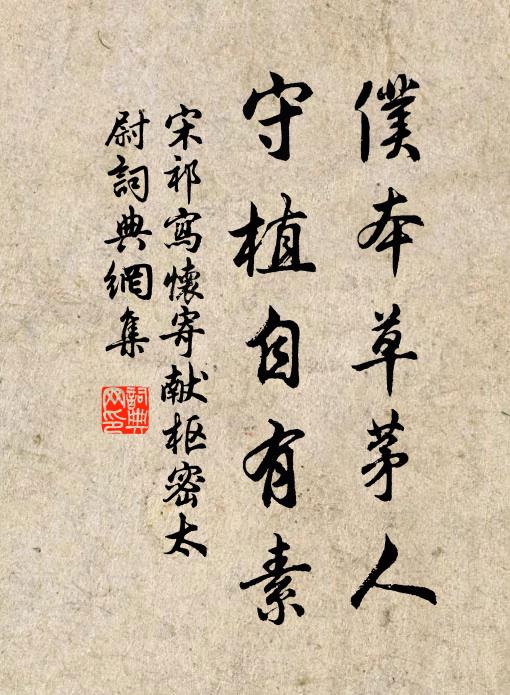 僕本草茅人
守植自有素
宋祁寫懷寄献枢密太
尉詞典網集
詞典
网印